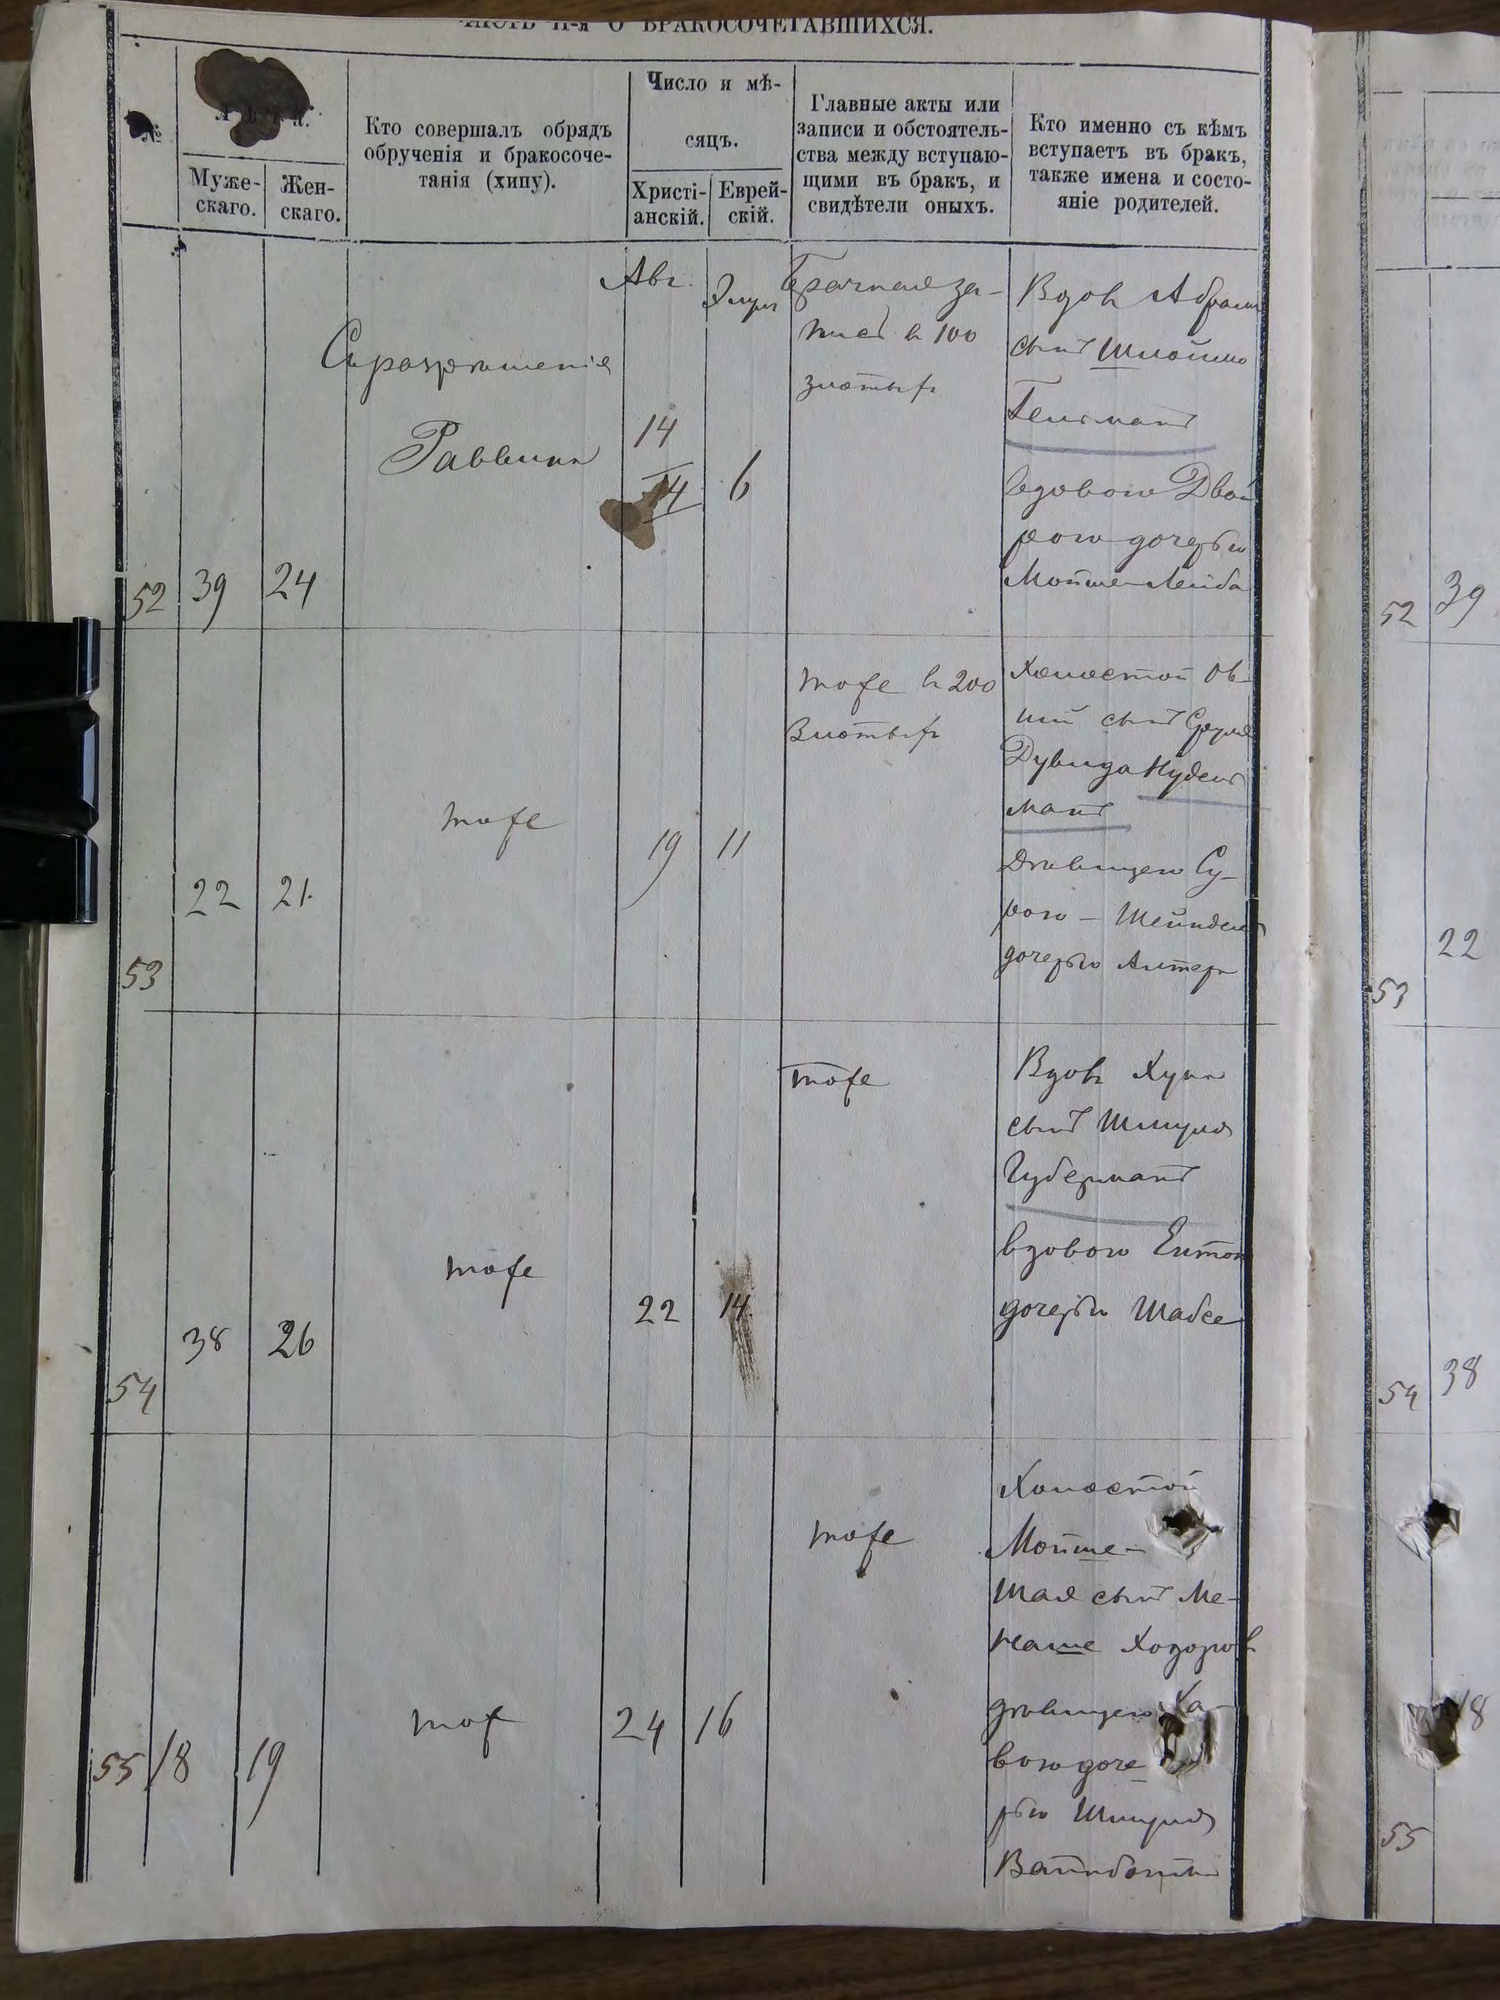 ЧАСТЬ II-я О БРАКОСОЧЕТАВШИХСЯ.
№
Лѣта.
Муже-
скаго.
Жен-
скаго.
Кто совершалъ обрядъ
обрученія и бракосоче-
танія (хипу).
Число и мѣ-
сяцъ.
Христі-
анскій.
Еврей-
скій.
Главные акты или
записи и обстоятель-
ства между вступаю-
щими въ бракъ, и
свидѣтели оныхъ.
Кто именно съ кѣмъ
вступаетъ въ бракъ,
также имена и состо-
яніе родителей.
52
39
24
Съ разрѣшенія
Раввина
Авг.
14
14
Элулъ
6
Брачная за-
пись в 100
злотыхъ
Вдовъ Абрамъ
сынъ Шлоймо
Гельманъ
вдовою Двой
рою дочерью
Мойше-Лейба
53
22
21.
тоже
19
11
тоже в 200
злотыхъ
Холостой Ов-
ший сынъ Сруля
Дувида Нудель
манъ
дѣвицею Су-
рою - Шейндель
дочерью Алтера
54
38
26
тоже
22
14.
тоже
Вдовъ Хуна
сынъ Шмуля
Губерманъ
вдовою Ентою
дочерью Шабсе
55
18
19
тож
24
16
тоже
Холостой
Мойше-
Шая сынъ Ме-
наше Ходоров
дѣвицею Ха-
вою доче
рью Шмуля
52
39
53
22
54
38
55
18